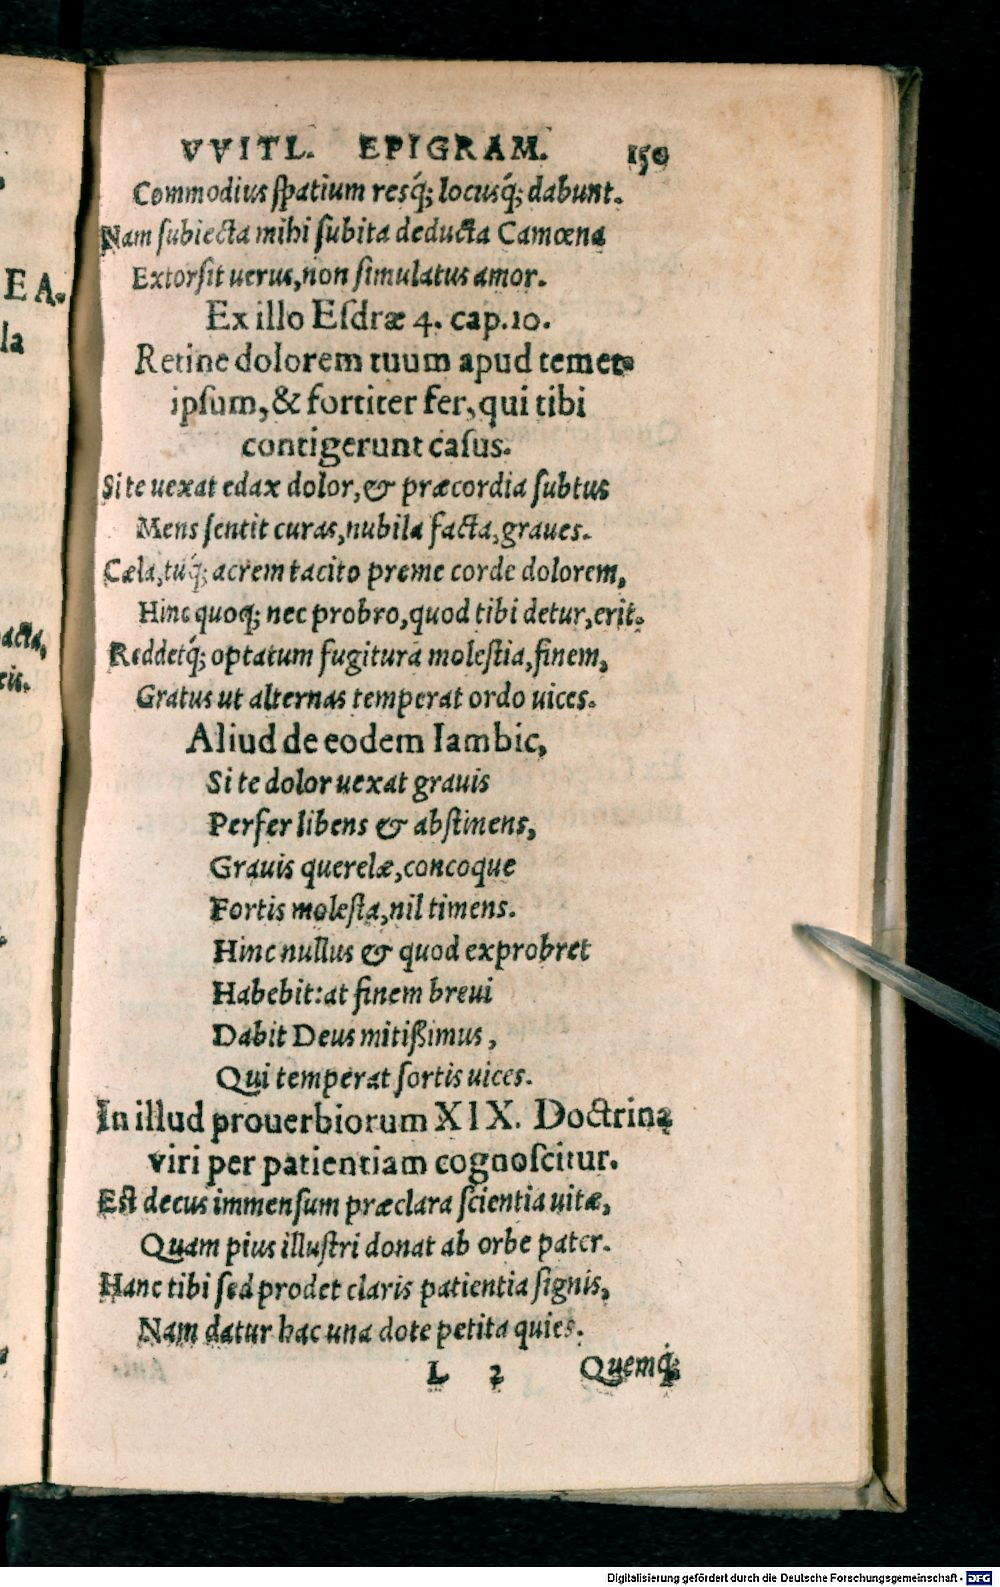 VVITL. EPIGRAM. 150
Commodius spatium resq́; locusq́; dabunt.
Nam subiecta mihi subita deducta Camœna
Extorsit uerus, non simulatus amor.
Ex illo Esdræ 4. cap. 10.
Retine dolorem tuum apud temet-
ipsum, & fortiter fer, qui tibi
contigerunt casus.
Si te uexat edax dolor, & præcordia subtus
Mens sentit curas, nubila facta, graues.
Cæla, tuq́; acrem tacito preme corde dolorem,
Hinc quoq; nec probro, quod tibi detur, erit.
Reddetq́; optatum fugitura molestia, finem,
Gratus ut alternas temperat ordo uices.
Aliud de eodem Iambic,
Si te dolor uexat grauis
Perfer libens & abstinens,
Grauis querelæ, concoque
Fortis molesta, nil timens.
Hinc nullus & quod exprobret
Habebit: at finem breui
Dabit Deus mitißimus,
Qui temperat sortis uices.
In illud prouerbiorum XIX. Doctrina
viri per patientiam cognoscitur.
Est decus immensum præclara scientia uitæ,
Quam pius illustri donat ab orbe pater.
Hanc tibi sed prodet claris patientia signis,
Nam datur hac una dote petita quies.
L 2 Quemq́;
EA.
la
acta,
cis.
Digitalisierung gefördert durch die Deutsche Forschungsgemeinschaft - DFG